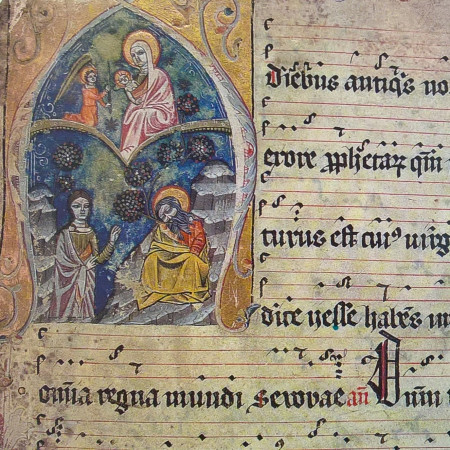 diebus antiqs no
erore pphetar qm
turus est cuiꝰ uirg
dice yesse habes
omīa regna mundi Seuouae an̄ Dum